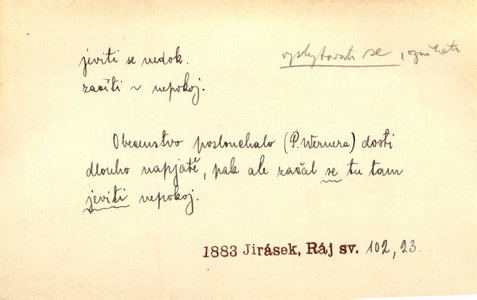 jeviti se nedok.
vyskytovati se, vznikati
začíti ~ nepokoj.
Obecenstvo poslouchalo (P. Wernera) dosti
dlouho napjatě, pak ale začal se tu tam
jeviti nepokoj.
1883 Jirásek, Ráj sv. 102, 23.